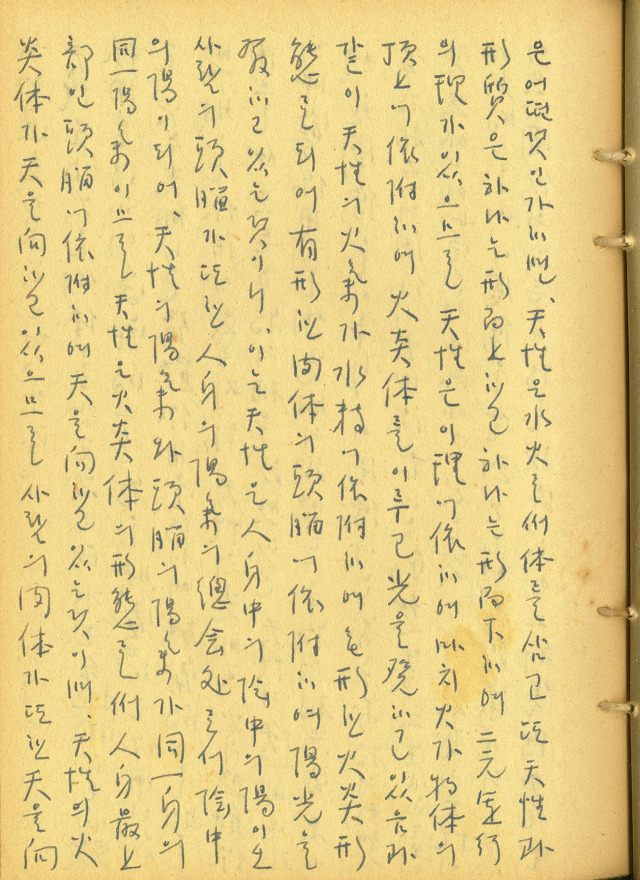 은 어떤것인가 하면、天性은 水火로써 体를 삼고 또 天性과
形質은 하나는 形而上하고 하나는 形而下하여 二元 運行
의 理가 있으므로 天性은 이 理에 依하여 마치 火가 物体의
頂上에 依附하여 火炎体를 이루고 光을 發하고 있음과
같이 天性의 火氣가 水精에 依附하여 無形한 火炎形
態로 되어 有形한 肉体의 頭腦에 依附하여 陽光을
發하고 있는것이니、이는 天性은 人身中의 陰中의 陽이오
사람의 頭腦가 또한 人身의 陽氣의 總会处로서 陰中
의 陽이 되어、天性의 陽氣와 頭腦의 陽氣가 同一身의
同一陽氣이므로 天性은 火炎体의 形態로써 人身最上
部인 頭腦에 依附하여 天을 向하고 있는것이며、天性의 火
炎体가 天을 向하고 있으므로 사람의 肉体가 또한 天을 向